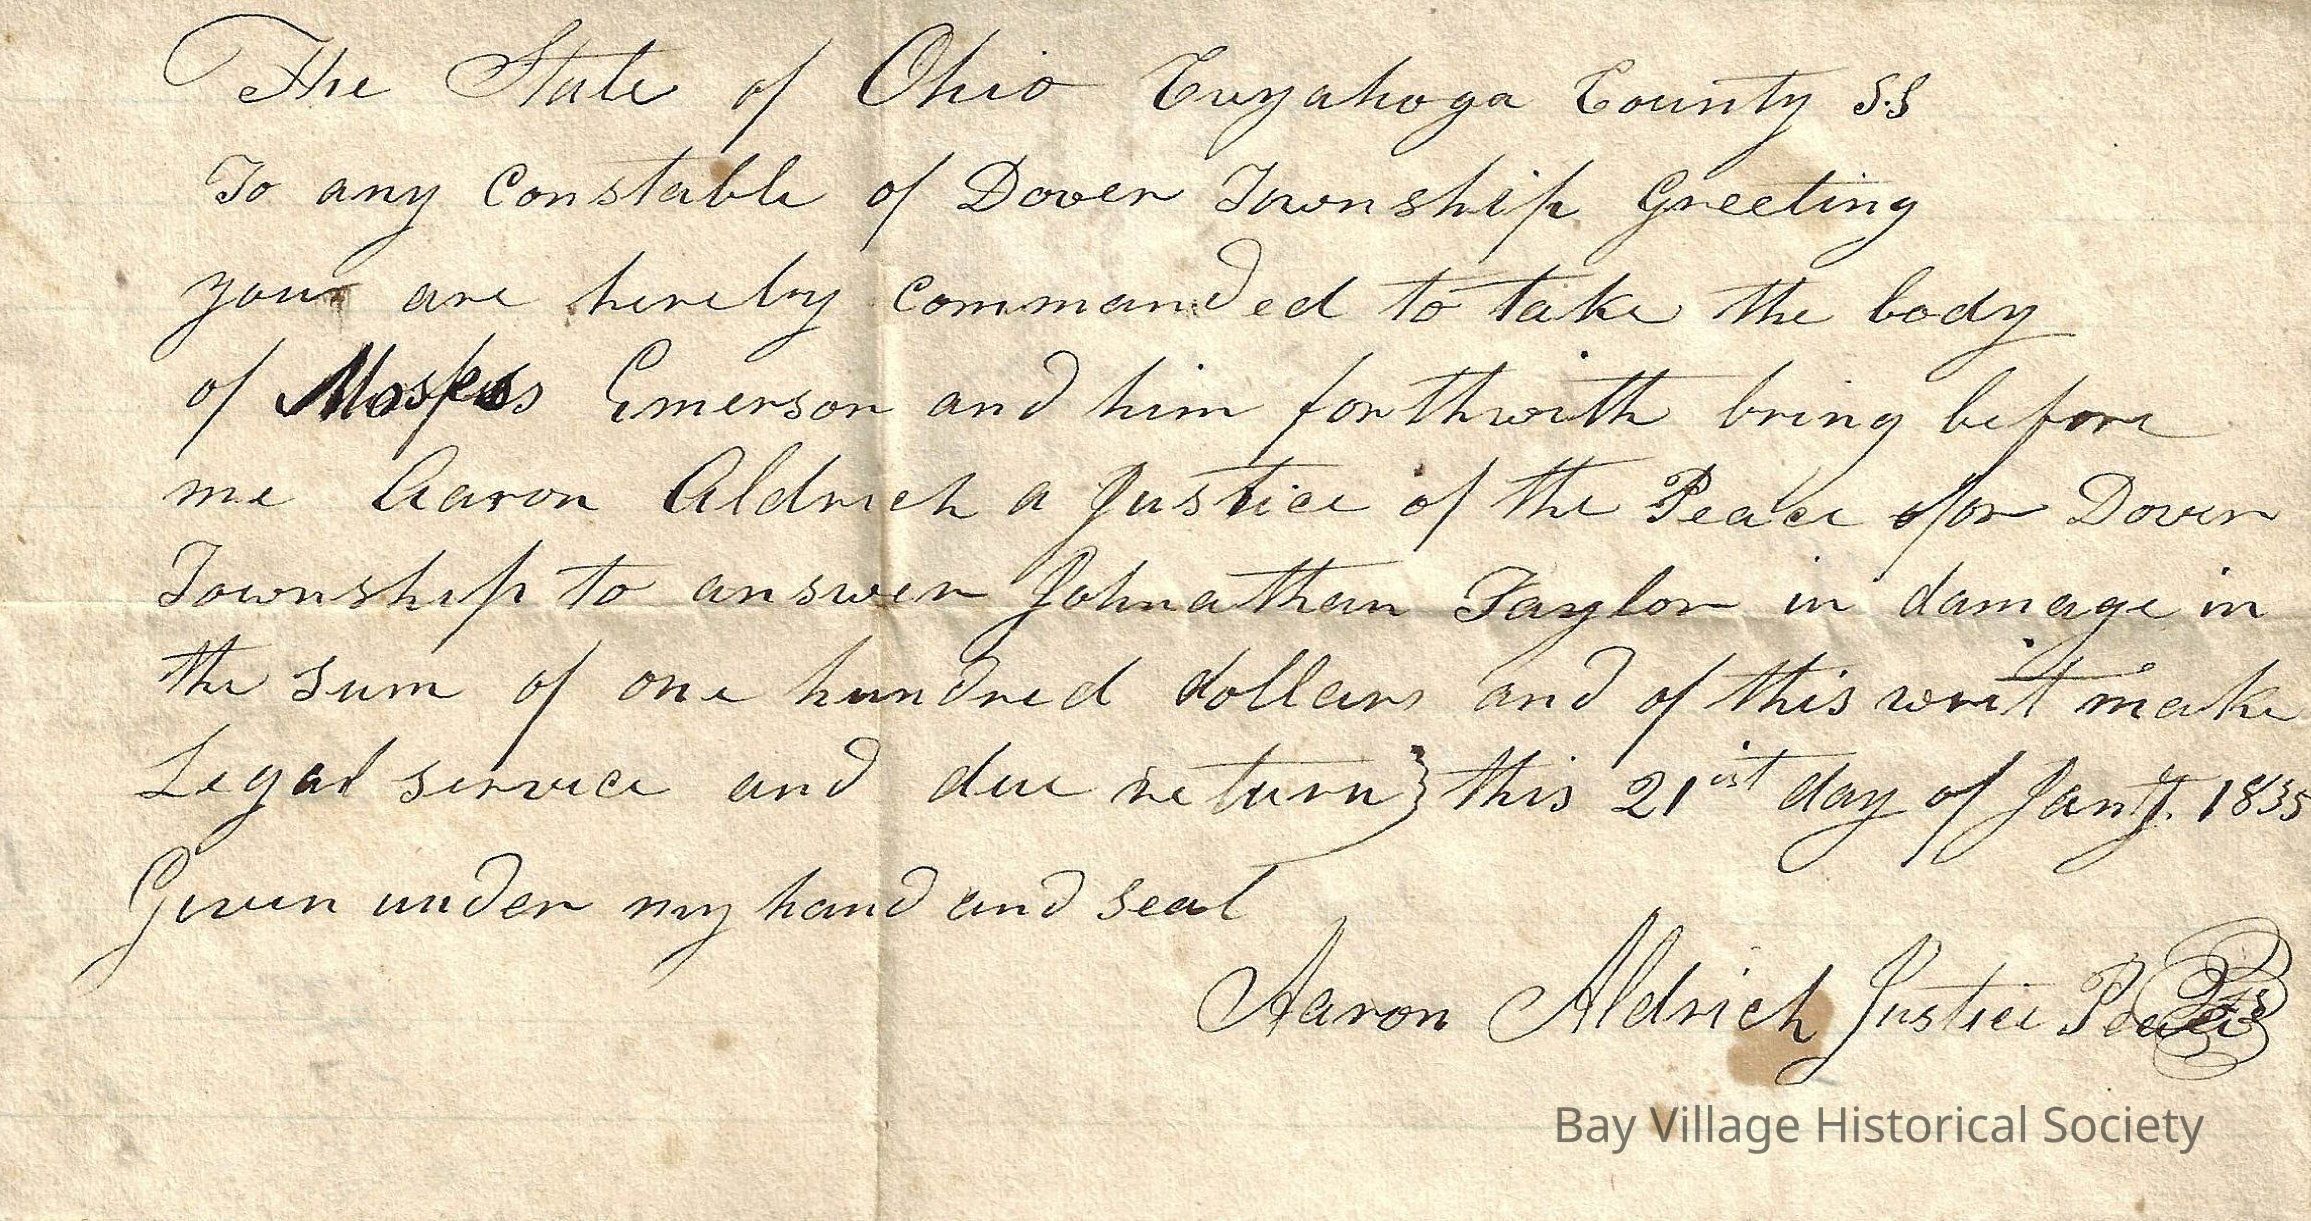 The State of Ohio Cuyahoga County S.S
To any Constable of Dover Township Greeting
you are hereby Commanded to take the body
of Emerson and him forthwith bring before
me Aaron Aldrich a Justice of the Peace for Dover
Township to answer Johnathan Taylor in damage in
the sum of one hundred dollars and of this writ make
Legal service and due return } this 21ist day of Jany. 1835
Given under my hand and seal
Aaron Aldrich Justice Peace
Bay Village Historical Society